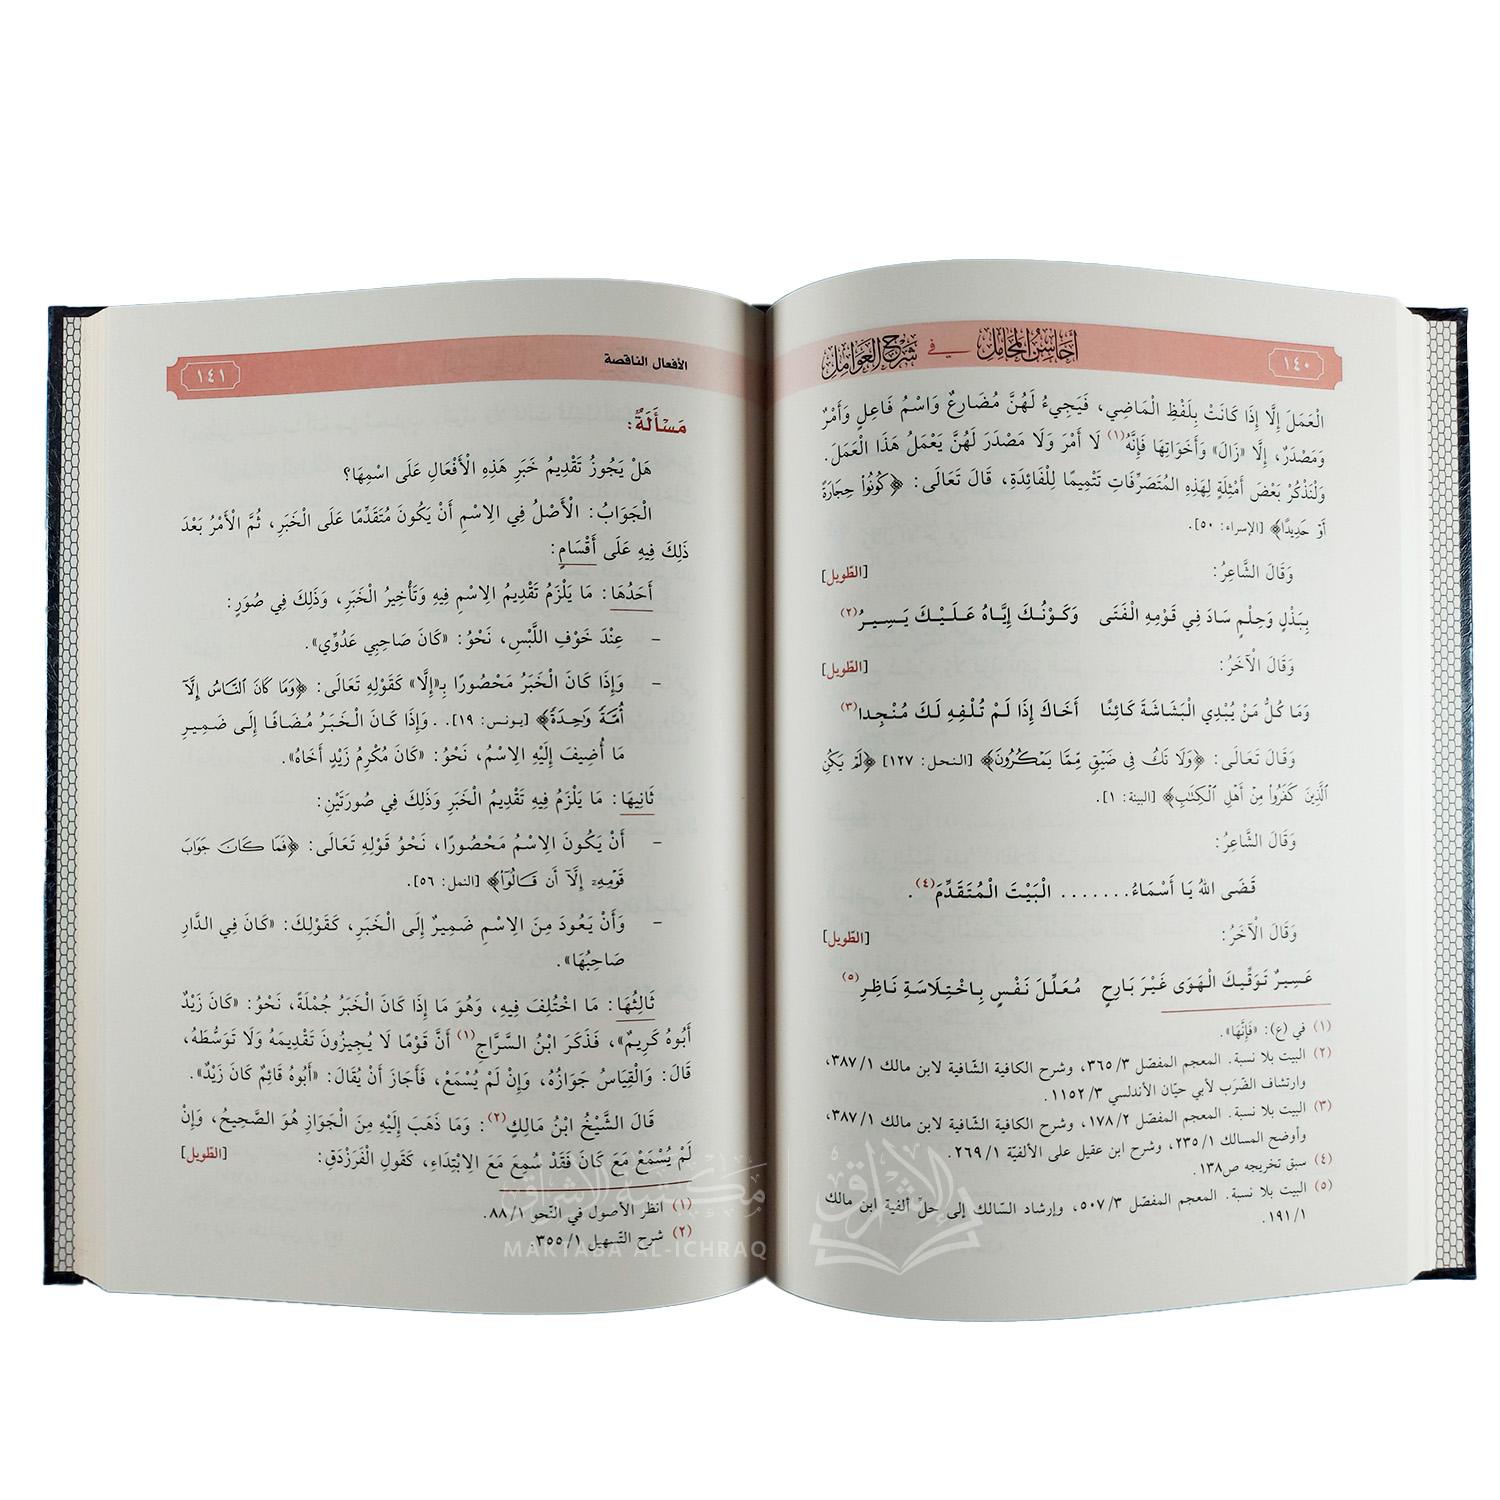 ١٤٠
أحاسن المحامل في شرح العوامل
الْعَمَلَ إِلَّا إِذَا كَانَتْ بِلَفْظِ الْمَاضِي، فَيَجِيءُ لَهُنَّ مُضَارِعٌ وَاسْمُ فَاعِلٍ وَأَمْرٌ
وَمَصْدَرٌ، إِلَّا «زَالَ» وَأَخَوَاتِهَا فَإِنَّهُ(١) لَا أَمْرَ وَلَا مَصْدَرَ لَهُنَّ يَعْمَلُ هَذَا الْعَمَلَ.
وَلْنَذْكُرْ بَعْضَ أَمْثِلَةٍ لِهَذِهِ الْمُتَصَرِّفَاتِ تَتْمِيمًا لِلْفَائِدَةِ، قَالَ تَعَالَى: ﴿كُونُواْ حِجَارَةً
أَوۡ حَدِيدًا﴾ [الإسراء: ٥٠].
وَقَالَ الشَّاعِرُ: [الطّويل]
بِبَذْلٍ وَحِلْمٍ سَادَ فِي قَوْمِهِ الْفَتَى وَكَوْنُكَ إِيَّاهُ عَلَيْكَ يَسِيرُ(٢)
وَقَالَ الْآخَرُ: [الطّويل]
وَمَا كُلُّ مَنْ يُبْدِي الْبَشَاشَةَ كَائِنًا أَخَاكَ إِذَا لَمْ تُلْفِهِ لَكَ مُنْجِدا(٣)
وَقَالَ تَعَالَى: ﴿وَلَا تَكُ فِي ضَيۡقٖ مِّمَّا يَمۡكُرُونَ﴾ [النحل: ١٢٧] ﴿لَمۡ يَكُنِ
ٱلَّذِينَ كَفَرُواْ مِنۡ أَهۡلِ ٱلۡكِتَٰبِ﴾ [البينة: ١].
وَقَالَ الشَّاعِرُ:
قَضَى اللهُ يَا أَسْمَاءُ....... الْبَيْتَ الْمُتَقَدِّمَ(٤).
وَقَالَ الْآخَرُ: [الطّويل]
عَسِيرٌ تَوَقِّيكَ الْهَوَى غَيْرَ بَارِحٍ مُعَلِّلَ نَفْسٍ بِاخْتِلَاسَةِ نَاظِرِ(٥)
(١) في (ع): «فَإِنَّهَا».
(٢) البيت بلا نسبة. المعجم المفصّل ٣/ ٣٦٥، وشرح الكافية الشّافية لابن مالك ١/ ٣٨٧،
وارتشاف الضّرب لأبي حيّان الأندلسي ٣/ ١١٥٢.
(٣) البيت بلا نسبة. المعجم المفصّل ٢/ ١٧٨، وشرح الكافية الشّافية لابن مالك ١/ ٣٨٧،
وأوضح المسالك ١/ ٢٣٥، وشرح ابن عقيل على الألفيّة ١/ ٢٦٩.
(٤) سبق تخريجه ص١٣٨.
(٥) البيت بلا نسبة. المعجم المفصّل ٣/ ٥٠٧، وإرشاد السّالك إلى حلّ ألفية ابن مالك
١/ ١٩١.
الأفعال الناقصة
١٤١
مَسْأَلَةٌ:
هَلْ يَجُوزُ تَقْدِيمُ خَبَرِ هَذِهِ الْأَفْعَالِ عَلَى اسْمِهَا؟
الْجَوَابُ: الْأَصْلُ فِي الِاسْمِ أَنْ يَكُونَ مُتَقَدِّمًا عَلَى الْخَبَرِ، ثُمَّ الْأَمْرُ بَعْدَ
ذَلِكَ فِيهِ عَلَى أَقْسَامٍ:
أَحَدُهَا: مَا يَلْزَمُ تَقْدِيمُ الِاسْمِ فِيهِ وَتَأْخِيرُ الْخَبَرِ، وَذَلِكَ فِي صُوَرٍ:
- عِنْدَ خَوْفِ اللَّبْسِ، نَحْوُ: «كَانَ صَاحِبِي عَدُوِّي».
- وَإِذَا كَانَ الْخَبَرُ مَحْصُورًا بِـ«إِلَّا» كَقَوْلِهِ تَعَالَى: ﴿وَمَا كَانَ ٱلنَّاسُ إِلَّآ
أُمَّةٗ وَٰحِدَةٗ﴾ [يونس: ١٩].. وَإِذَا كَانَ الْخَبَرُ مُضَافًا إِلَى ضَمِيرِ
مَا أُضِيفَ إِلَيْهِ الِاسْمُ، نَحْوُ: «كَانَ مُكْرِمُ زَيْدٍ أَخَاهُ».
ثَانِيهَا: مَا يَلْزَمُ فِيهِ تَقْدِيمُ الْخَبَرِ وَذَلِكَ فِي صُورَتَيْنِ:
- أَنْ يَكُونَ الِاسْمُ مَحْصُورًا، نَحْوُ قَوْلِهِ تَعَالَى: ﴿فَمَا كَانَ جَوَابَ
قَوۡمِهِۦٓ إِلَّآ أَن قَالُوٓاْ﴾ [النمل: ٥٦].
- وَأَنْ يَعُودَ مِنَ الِاسْمِ ضَمِيرٌ إِلَى الْخَبَرِ، كَقَوْلِكَ: «كَانَ فِي الدَّارِ
صَاحِبُهَا».
ثَالِثُهَا: مَا اخْتُلِفَ فِيهِ، وَهُوَ مَا إِذَا كَانَ الْخَبَرُ جُمْلَةً، نَحْوُ: «كَانَ زَيْدٌ
أَبُوهُ كَرِيمٌ»، فَذَكَرَ ابْنُ السَّرَّاجِ(١) أَنَّ قَوْمًا لَا يُجِيزُونَ تَقْدِيمَهُ وَلَا تَوَسُّطَهُ،
قَالَ: وَالْقِيَاسُ جَوَازُهُ، وَإِنْ لَمْ يُسْمَعْ، فَأَجَازَ أَنْ يُقَالَ: «أَبُوهُ قَائِمٌ كَانَ زَيْدٌ».
قَالَ الشَّيْخُ ابْنُ مَالِكٍ(٢): وَمَا ذَهَبَ إِلَيْهِ مِنَ الْجَوَازِ هُوَ الصَّحِيحُ، وَإِنْ
لَمْ يُسْمَعْ مَعَ كَانَ فَقَدْ سُمِعَ مَعَ الِابْتِدَاءِ، كَقَولِ الْفَرَزْدَقِ: [الطّويل]
(١) انظر الأصول في النّحو ١/ ٨٨.
(٢) شرح التّسهيل ١/ ٣٥٥.
مكتبة الإشراق
MAKTABA AL-ICHRAQ
الإشراق